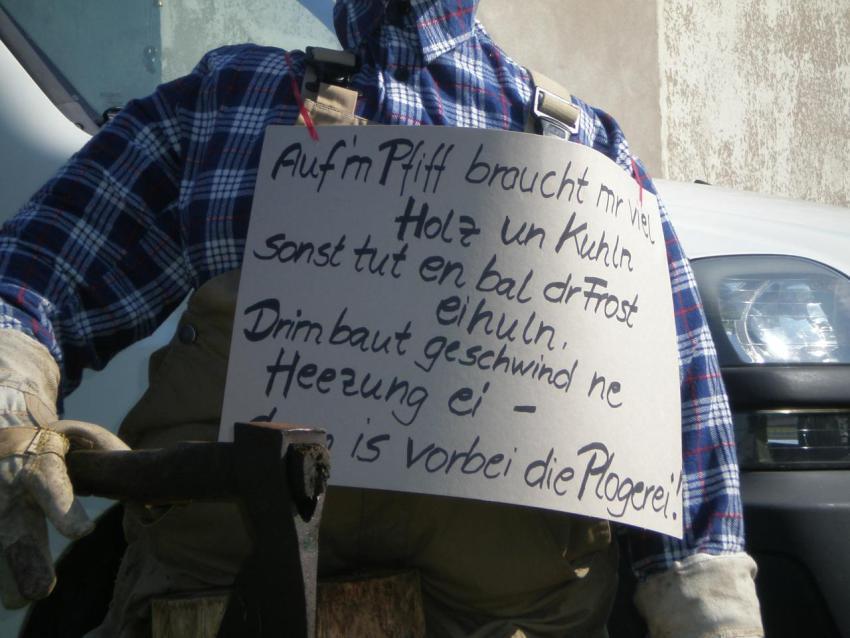 Auf'm Pfiff braucht mr viel
Holz un Kuhln
sonst tut en bal dr Frost
eihuln.
Drim baut geschwind ne
Heezung ei –
is vorbei die Plogerei!